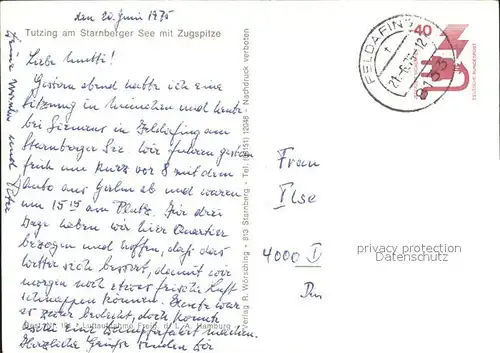 den 20. Juni 1975
Tutzing am Starnberger See mit Zugspitze
Liebe Mutti!
Gestern abend hatte ich eine
Sitzung in München und heute
bei Siemens in Feldafing am
Starnberger See. Wir fuhren gestern
früh um kurz vor 8 mit dem
Auto aus ab und waren
um 15 15 am Platz. Für drei
Tage haben wir hier Quartier
bezogen und hoffen, daß das
Wetter sich bessert, damit wir
morgen noch etwas frische Luft
schnappen können. Heute war
es zwar bedeckt, doch konnte
Herzliche Grüße senden Dir
Deine und Peter
Verlag R. Wörsching - 813 Starnberg - Tel. (08151) 12048 - Nachdruck verboten
FELDAFING
21.-6.75-12
8133
40
DEUTSCHE BUNDESPOST
Frau
Ilse
4000 D
privacy protection
Datenschutz